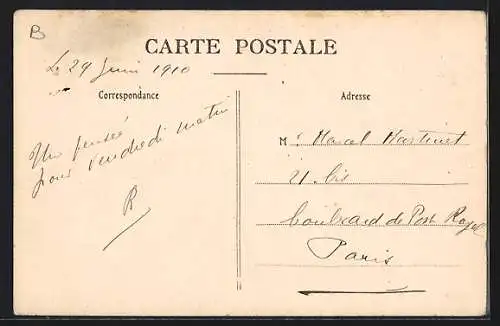 B
CARTE POSTALE
Le 29 Juin 1910
Correspondance
Adresse
Un pensée
pour vendredi matin
R
M r Marcel Martinet
21 bis
boulevard de Port Royal
Paris